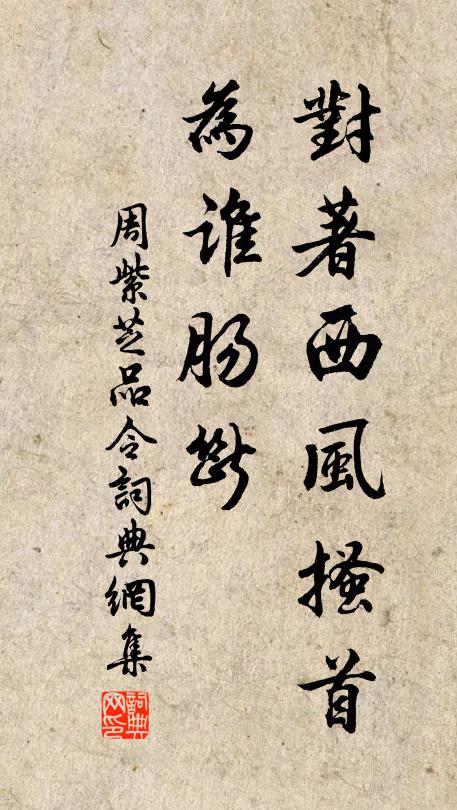 對著西風搔首
為誰腸斷
周紫芝品令詞典網集
詞典
网印